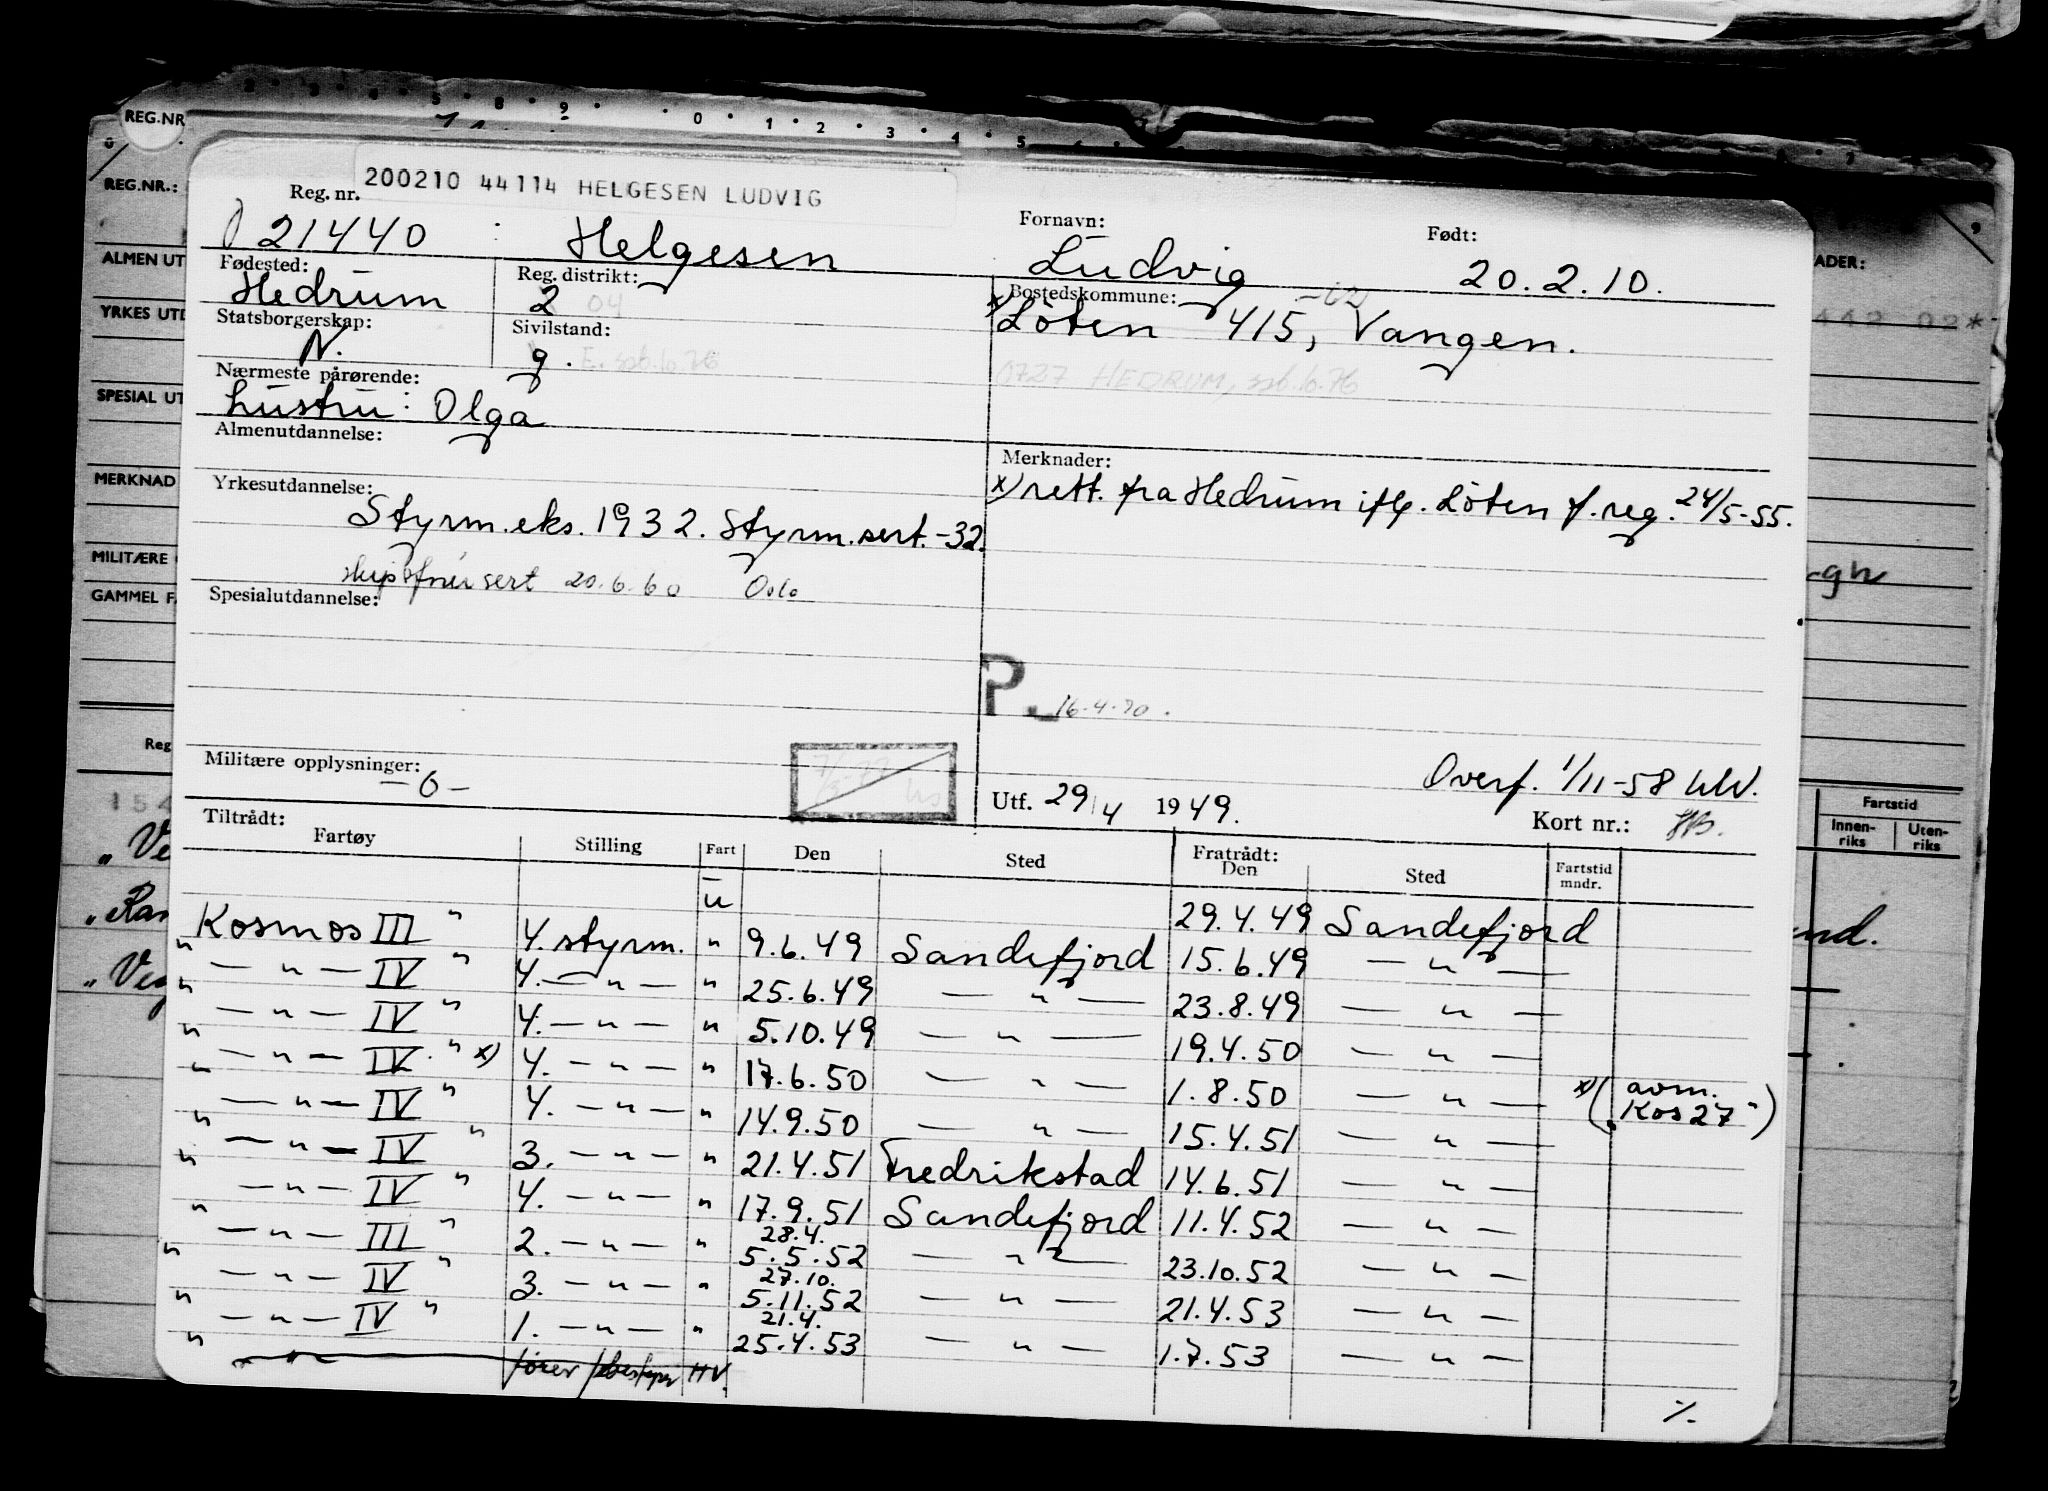 REG.NR
2 3 4 5 8 9 0 1 2 3 4 5
REG.NR.:
200210 44114 HELGESEN LUDVIG
Reg. nr. Fornavn: Født:
21440 Helgesen Ludvig 20.2.10.
ALMEN UT ADER:
Fødested: Reg. distrikt: Bostedskommune:
Hedrum 2 04 x) Löten 415, Vangen.
YRKES UTD
Statsborgerskap: Sivilstand:
N. g. E. spb. 6.76 0727 HEDRUM, spb. 6.76
Nærmeste pårørende:
SPESIAL UT
hustru: Olga
Almenutdannelse: Merknader:
MERKNAD
Yrkesutdannelse: x) rett. fra Hedrum iflg. Löten f.reg. 24/5-55.
Styrm.eks. 1932. Styrm.sert.-32.
MILITÆRE
sert 20.6.60 Oslo
GAMMEL FA
Spesialutdannelse:
P. 16.4.70.
Reg
Militære opplysninger: Overf. 1/11-58
-0- Utf. 29/4 1949. Kort nr.:
Tiltrådt: Fratrådt:
Fartøy Stilling Fart Den Sted Den Sted Fartstid mndr.
Fartstid
Innen-riks Uten-riks
u 29.4.49 Sandefjord
" Kosmos III " 4. styrm. " 9.6.49 Sandefjord 15.6.49 — " —
" — " — IV " 4. — " — " 25.6.49 — " — 23.8.49 — " —
" — " — IV " 4. — " — " 5.10.49 — " — 19.4.50 — " —
" — " — IV " x) 4. — " — " 17.6.50 — " — 1.8.50 — " — x) (avm. "Kos 27")
" — " — IV " 4. — " — " 14.9.50 — " — 15.4.51 — " —
" — " — IV " 3. — " — " 21.4.51 Fredrikstad 14.6.51 — " —
" — " — IV " 4. — " — " 17.9.51 Sandefjord 11.4.52 — " —
" — " — III " 2. — " — " 28.4. 5.5.52 — " — 23.10.52 — " —
" — " — IV " 3. — " — " 27.10. 5.11.52 — " — 21.4.53 — " —
" — " — IV " 1. — " — " 21.4. 25.4.53 — " — 1.7.53 — " —
fører HV.
%